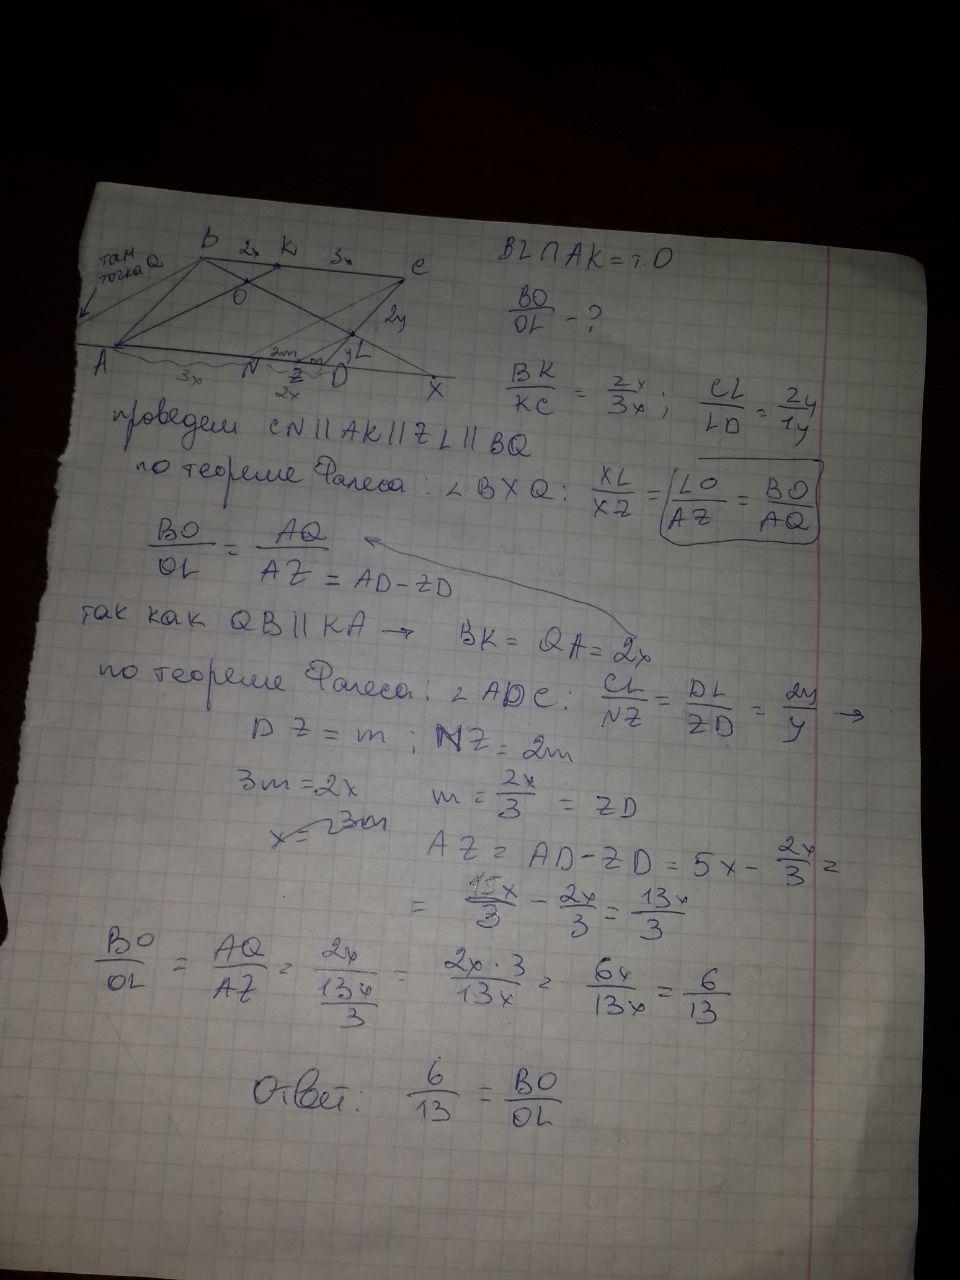 там точка Q
B 2x K 3x C
O
2y
A 3x N 2m Z m D yL X
2x
BL∩AK = т. O
BO/OL - ?
BK/KC = 2x/3x ; CL/LD = 2y/1y
проведем CN || AK || ZL || BQ
по теореме Фалеса: ∠BXQ: XL/XZ = LO/AZ = BO/AQ
BO/OL = AQ/AZ = AD-ZD
так как QB || KA → BK = QA = 2x
по теореме Фалеса: ∠ADC: CL/NZ = DL/ZD = 2y/y →
DZ = m ; NZ = 2m
3m = 2x m = 2x/3 = ZD
x = 3m
AZ = AD-ZD = 5x - 2x/3 =
= 15x/3 - 2x/3 = 13x/3
BO/OL = AQ/AZ = 2x/(13x/3) = 2x·3/13x = 6x/13x = 6/13
Ответ: 6/13 = BO/OL